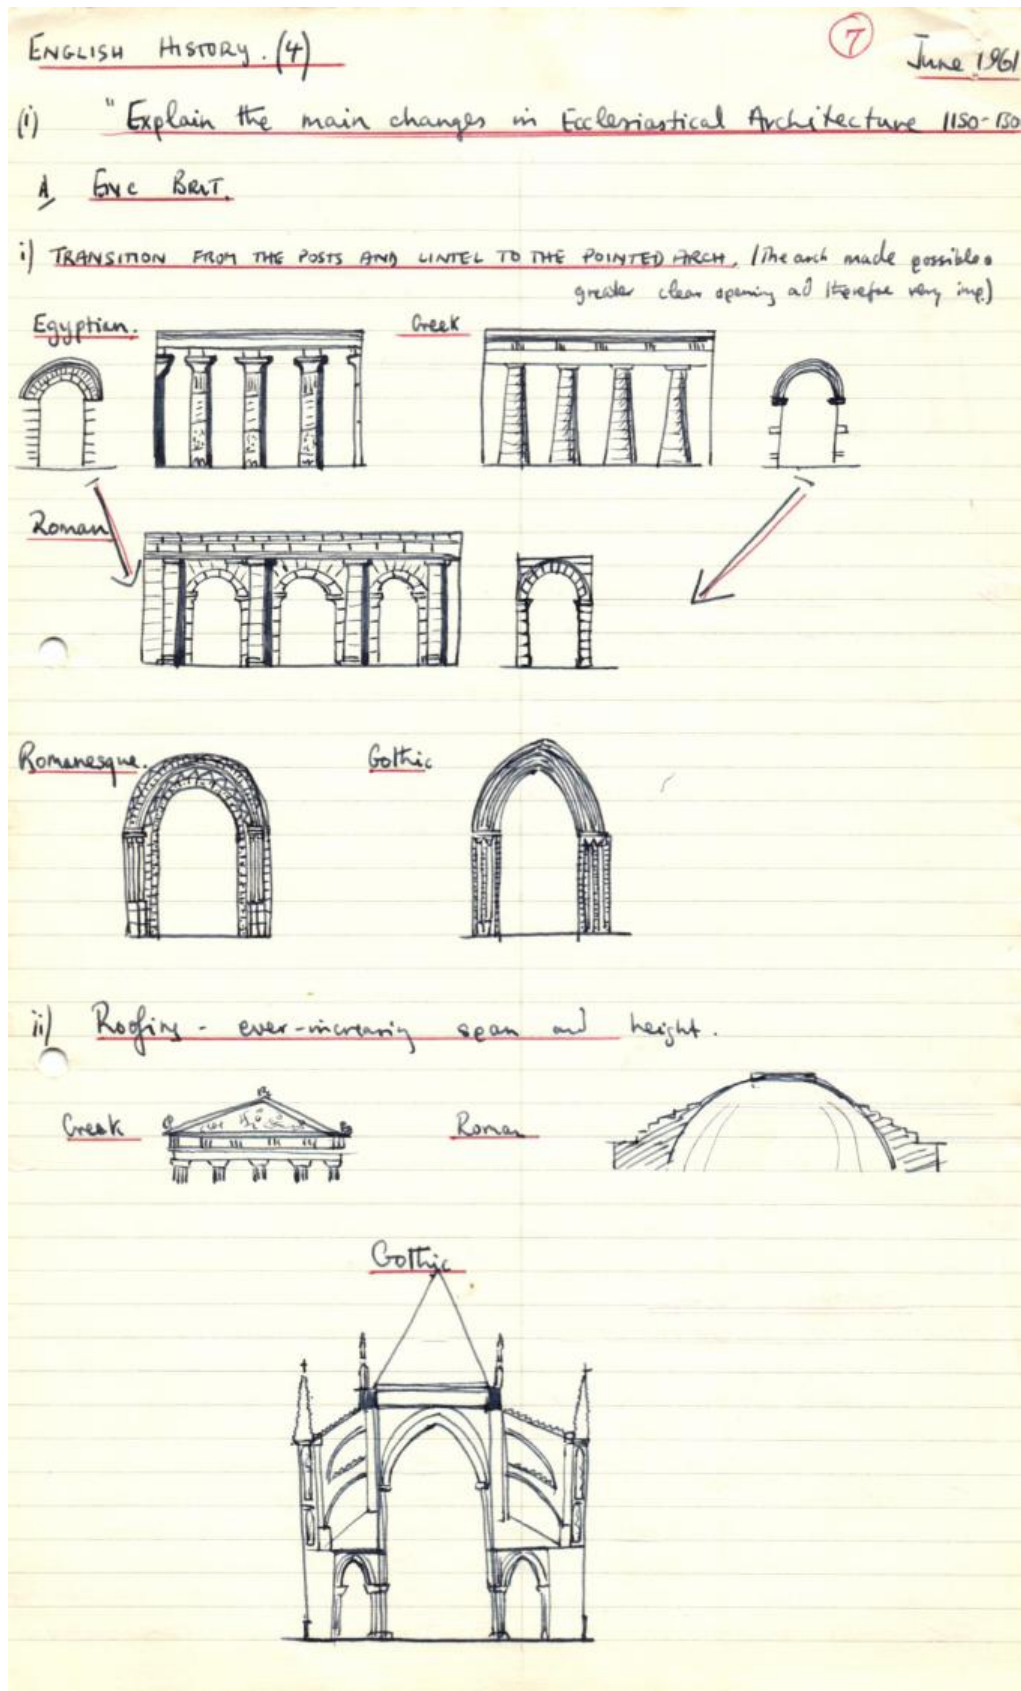 ENGLISH HISTORY. (4) 7 June 1961
(i) "Explain the main changes in Ecclesiastical Architecture 1150-130
A, ENC BRIT.
i) TRANSITION FROM THE POSTS AND LINTEL TO THE POINTED ARCH. (The arch made possible a
greater clear opening and therefore very imp.)
Egyptian. Greek
Roman
Romanesque. Gothic
ii) Roofing - ever-increasing span and height.
Greek Roman
Gothic